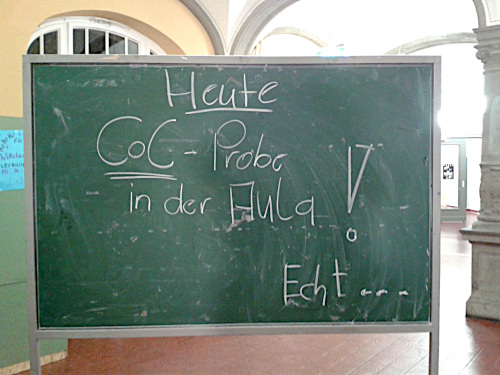 Heute
CoC - Probe
in der Aula !
Echt ...